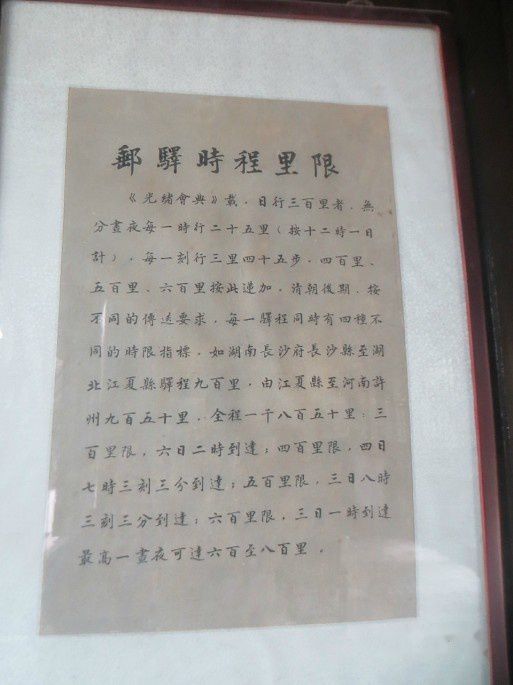 郵驛時程里限
《光緒會典》載，日行三百里者，無
分晝夜每一時行二十五里（按十二時一日
計），每一刻行三里四十五步，四百里、
五百里、六百里按此递加，清朝後期，按
不同的傳送要求，每一驛程同時有四種不
同的時限指標，如湖南長沙府長沙縣至湖
北江夏縣驛程九百里，由江夏縣至河南許
州九百五十里，全程一千八百五十里：三
百里限，六日二時到達；四百里限，四日
七時三刻三分到達；五百里限，三日八時
三刻三分到達；六百里限，三日一時到達
最高一晝夜可達六百至八百里。